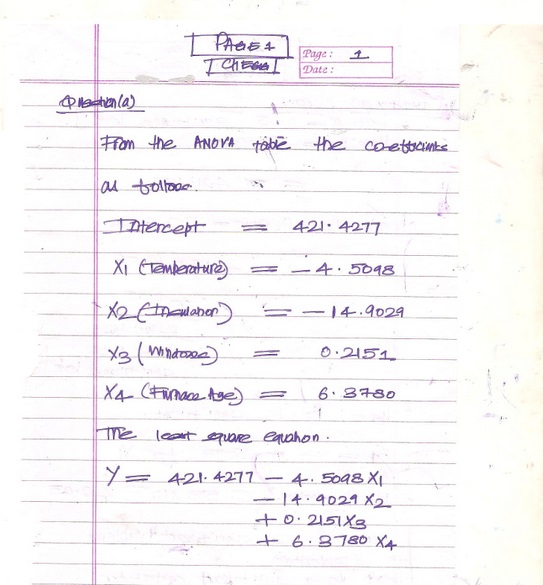 PAGE 1
CHEGG
Page: 1
Date:
Question(a)
From the ANOVA table the co-efficients
as follows.
Intercept = 421.4277
X1 (Temperature) = -4.5098
X2 (Insulation) = -14.9029
X3 (Windows) = 0.2151
X4 (Furnace Age) = 6.3780
The least square equation.
Y = 421.4277 - 4.5098 X1
- 14.9029 X2
+ 0.2151 X3
+ 6.3780 X4